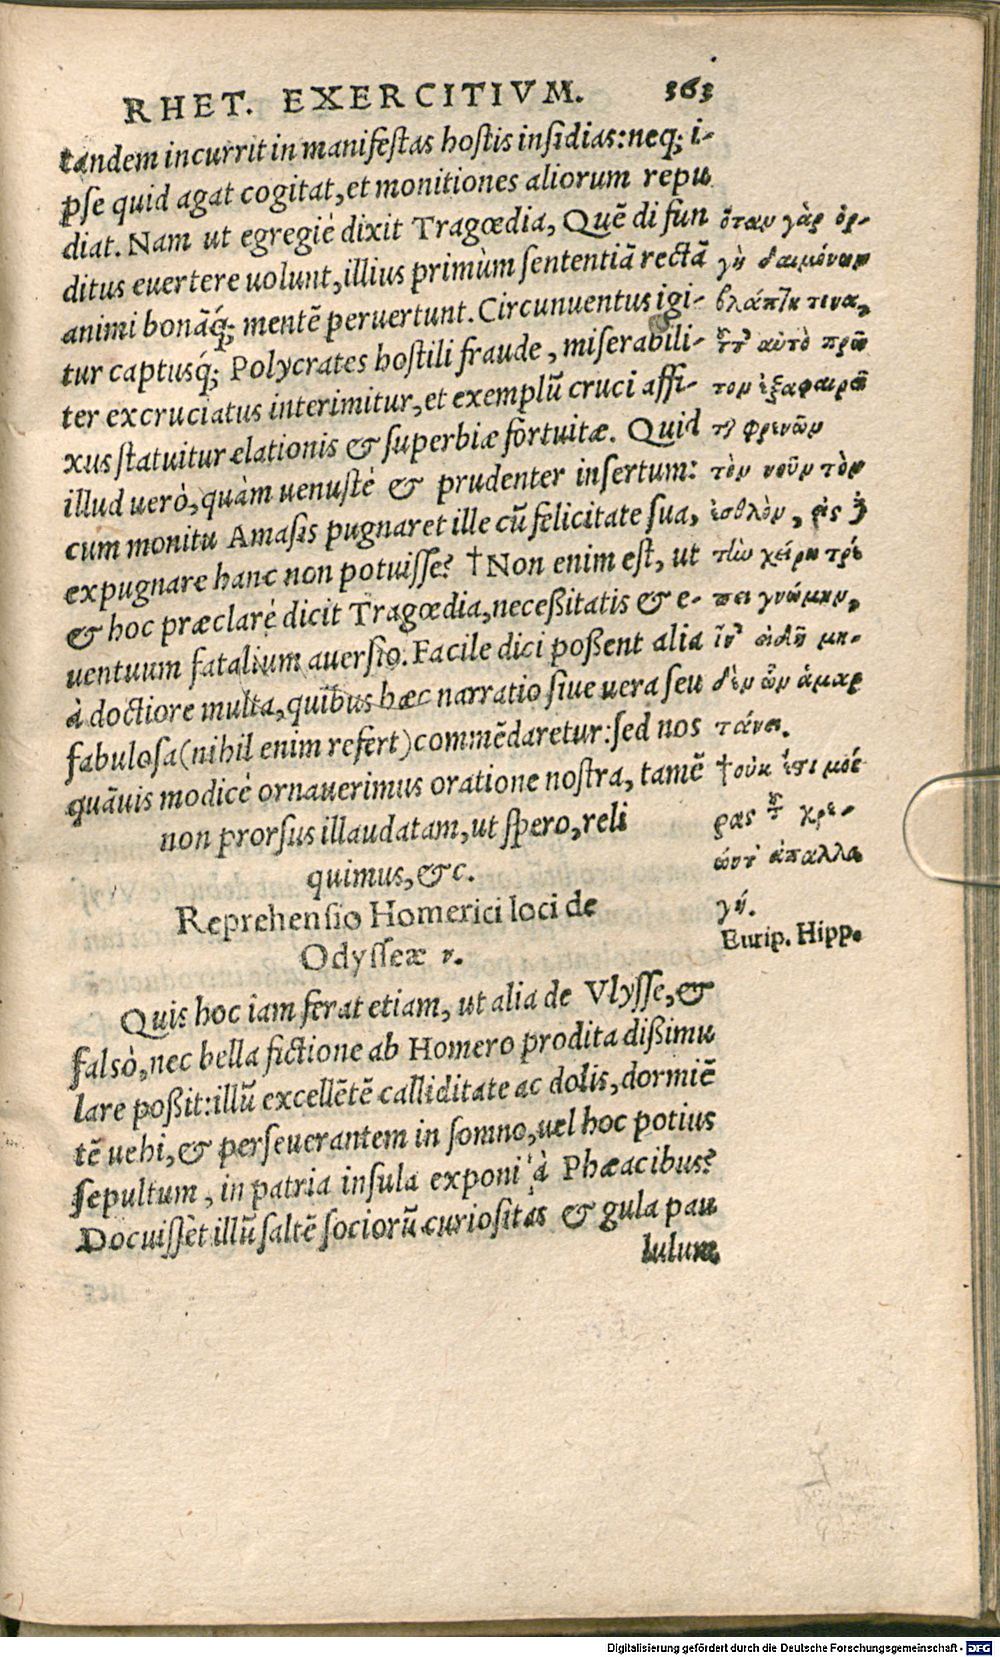 RHET. EXERCITIVM. 363
tandem incurrit in manifestas hostis insidias: neq; i-
pse quid agat cogitat, et monitiones aliorum repu
diat. Nam ut egregiè dixit Tragœdia, Quẽ di fun
ditus euertere uolunt, illius primùm sententiã rectã
animi bonãq́; mentẽ peruertunt. Circunuentus igi-
tur captusq́; Polycrates hostili fraude, miserabili-
ter excruciatus interimitur, et exemplũ cruci affi-
xus statuitur elationis & superbiæ fortuitæ. Quid
illud uerò, quàm uenustè & prudenter insertum:
cum monitu Amasis pugnaret ille cũ felicitate sua,
expugnare hanc non potuisse? †Non enim est, ut
& hoc præclarè dicit Tragœdia, neceßitatis & e-
uentuum fatalium auersio. Facile dici poßent alia
à doctiore multa, quibus hæc narratio siue uera seu
fabulosa (nihil enim refert) commẽdaretur: sed nos
quãuis modicè ornauerimus oratione nostra, tamẽ
non prorsus illaudatam, ut spero, reli
quimus, &c.
ὅταν γὰρ ὀρ-
γὴ δαιμόνων
βλάπτῃ τινα,
τοῦτ᾽ αὐτὸ πρῶ
τον ἐξαφαιρεῖ
τῶν φρενῶν
τὸν νοῦν τὸν
ἐσθλὸν, εἰς δὲ
τὴν χείρω τρέ
πει γνώμην,
ἵν᾽ εἰδῇ μη-
δὲν ὧν ἁμαρ
τάνει.
†οὐκ ἔστι μοί
ρας τοῦ χρε-
ών τ᾽ ἀπαλλα
γή.
Eurip. Hipp.
Reprehensio Homerici loci de
Odysseæ ν.
Quis hoc iam ferat etiam, ut alia de Vlysse, &
falsò, nec bella fictione ab Homero prodita dißimu
lare poßit: illũ excellẽtẽ calliditate ac dolis, dormiẽ
tẽ uehi, & perseuerantem in somno, uel hoc potius
sepultum, in patria insula exponi à Phæacibus?
Docuisset illũ saltẽ sociorũ curiositas & gula pau
lulum
Digitalisierung gefördert durch die Deutsche Forschungsgemeinschaft - DFG